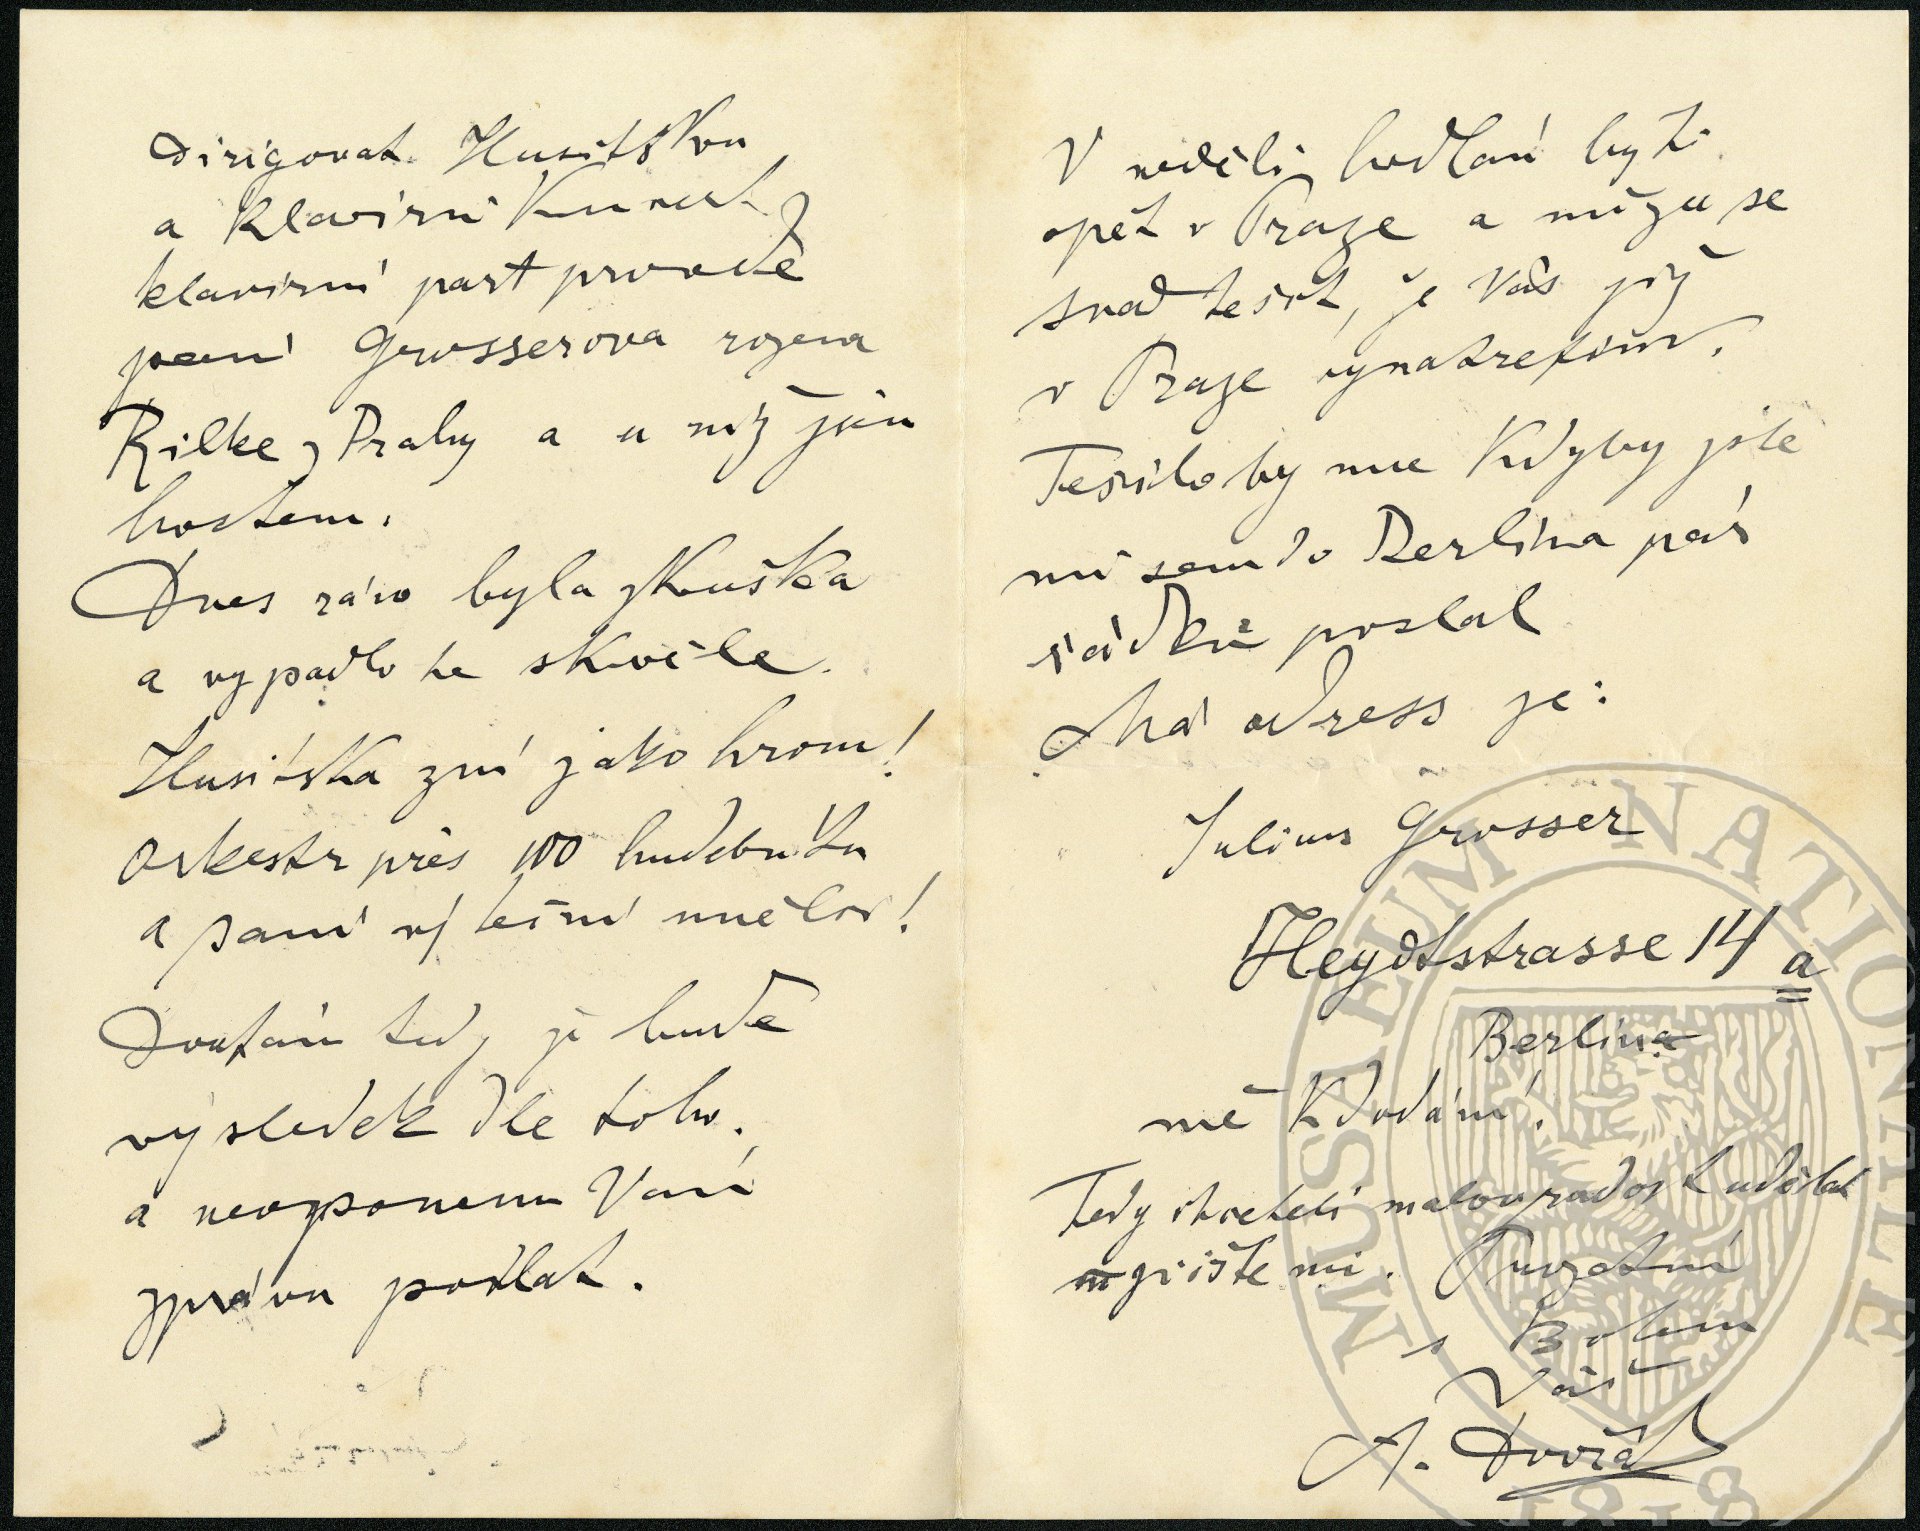 Dirigovat Husitskou
a klavirní Koncert
klavirní part provede
paní Grosserova rozena
Rilke z Prahy a u níž jsem
hostem.
Dnes ráno byla zkouška
a vypadlo te skvěle.
Husitska zní jako hrom!
Orkestr přes 100 hudebníku
a paní výteční umělci!
Doufám tedy že bude
výsledek dle toho.
a nevzpomenu Vam
zprávu podlat.
V neděli hodlám byti
opět v Praze a můžu se
snad tešit, že Vás již
v Praze vynatrefím.
Tešilo by mne Kdyby jste
mi sem do Berlína pár
řádků poslal
Má adress je:
Julius Grosser
Heydtstrasse 14 a
Berlina
mě K dodání.
Tedy chceteli malou radost udělat
n pište mi. Pozdraví
s Bohem
Váš
A. Dvořák
MUSAEUM NATIONALE
1818